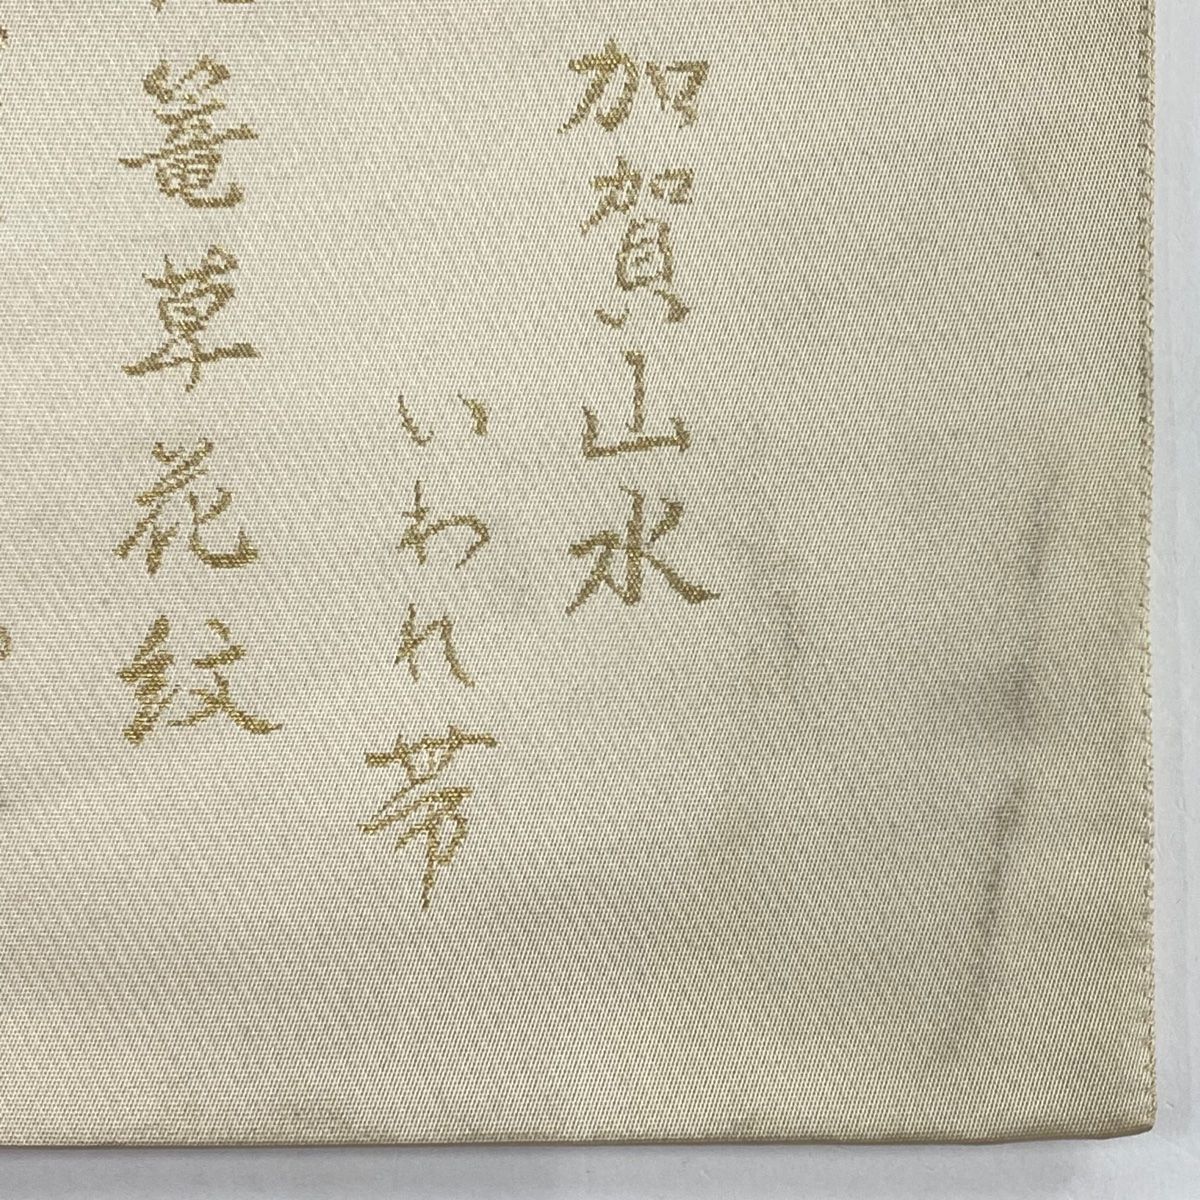 加賀山水
いわれ帯
篭草花紋